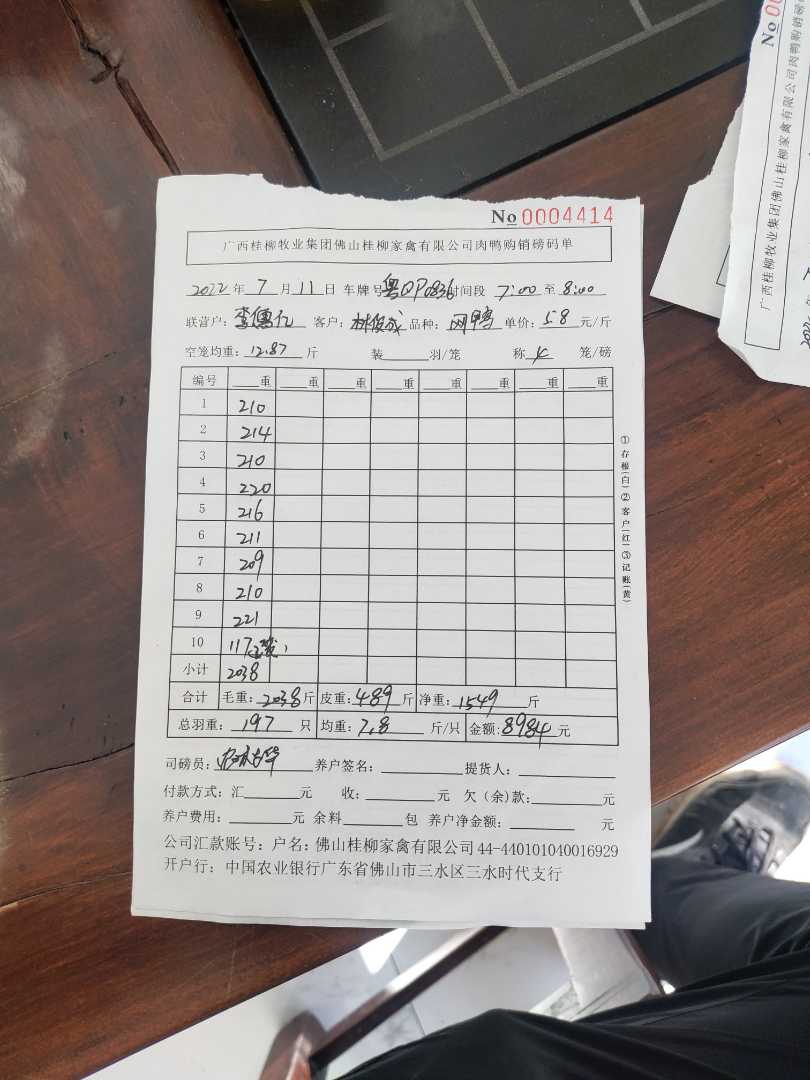 No 0004414
广西桂柳牧业集团佛山桂柳家禽有限公司肉鸭购销磅码单
2022年 7 月 11 日 车牌号 粤QP0836 时间段 7:00 至 8:00
联营户: 客户: 林俊成 品种: 网鸭 单价: 5.8 元/斤
空笼均重: 12.87 斤 装 羽/笼 称 4 笼/磅
编号 重 重 重 重 重 重 重 重
1 210
2 214
3 210
4 220
5 216
6 211
7 209
8 210
9 221
10 117
小计 2038
合计 毛重: 2038斤 皮重: 489斤 净重: 1549 斤
总羽重: 197 只 均重: 7.8 斤/只 金额: 8984 元
司磅员: 养户签名: 提货人:
付款方式: 汇 元 收: 元 欠(余)款: 元
养户费用: 元 余料 包 养户净金额: 元
公司汇款账号: 户名: 佛山桂柳家禽有限公司 44-440101040016929
开户行: 中国农业银行广东省佛山市三水区三水时代支行
①存根(白)②客户(红)③记账(黄)
No 00
广西桂柳牧业集团佛山桂柳家禽有限公司肉鸭购销磅码